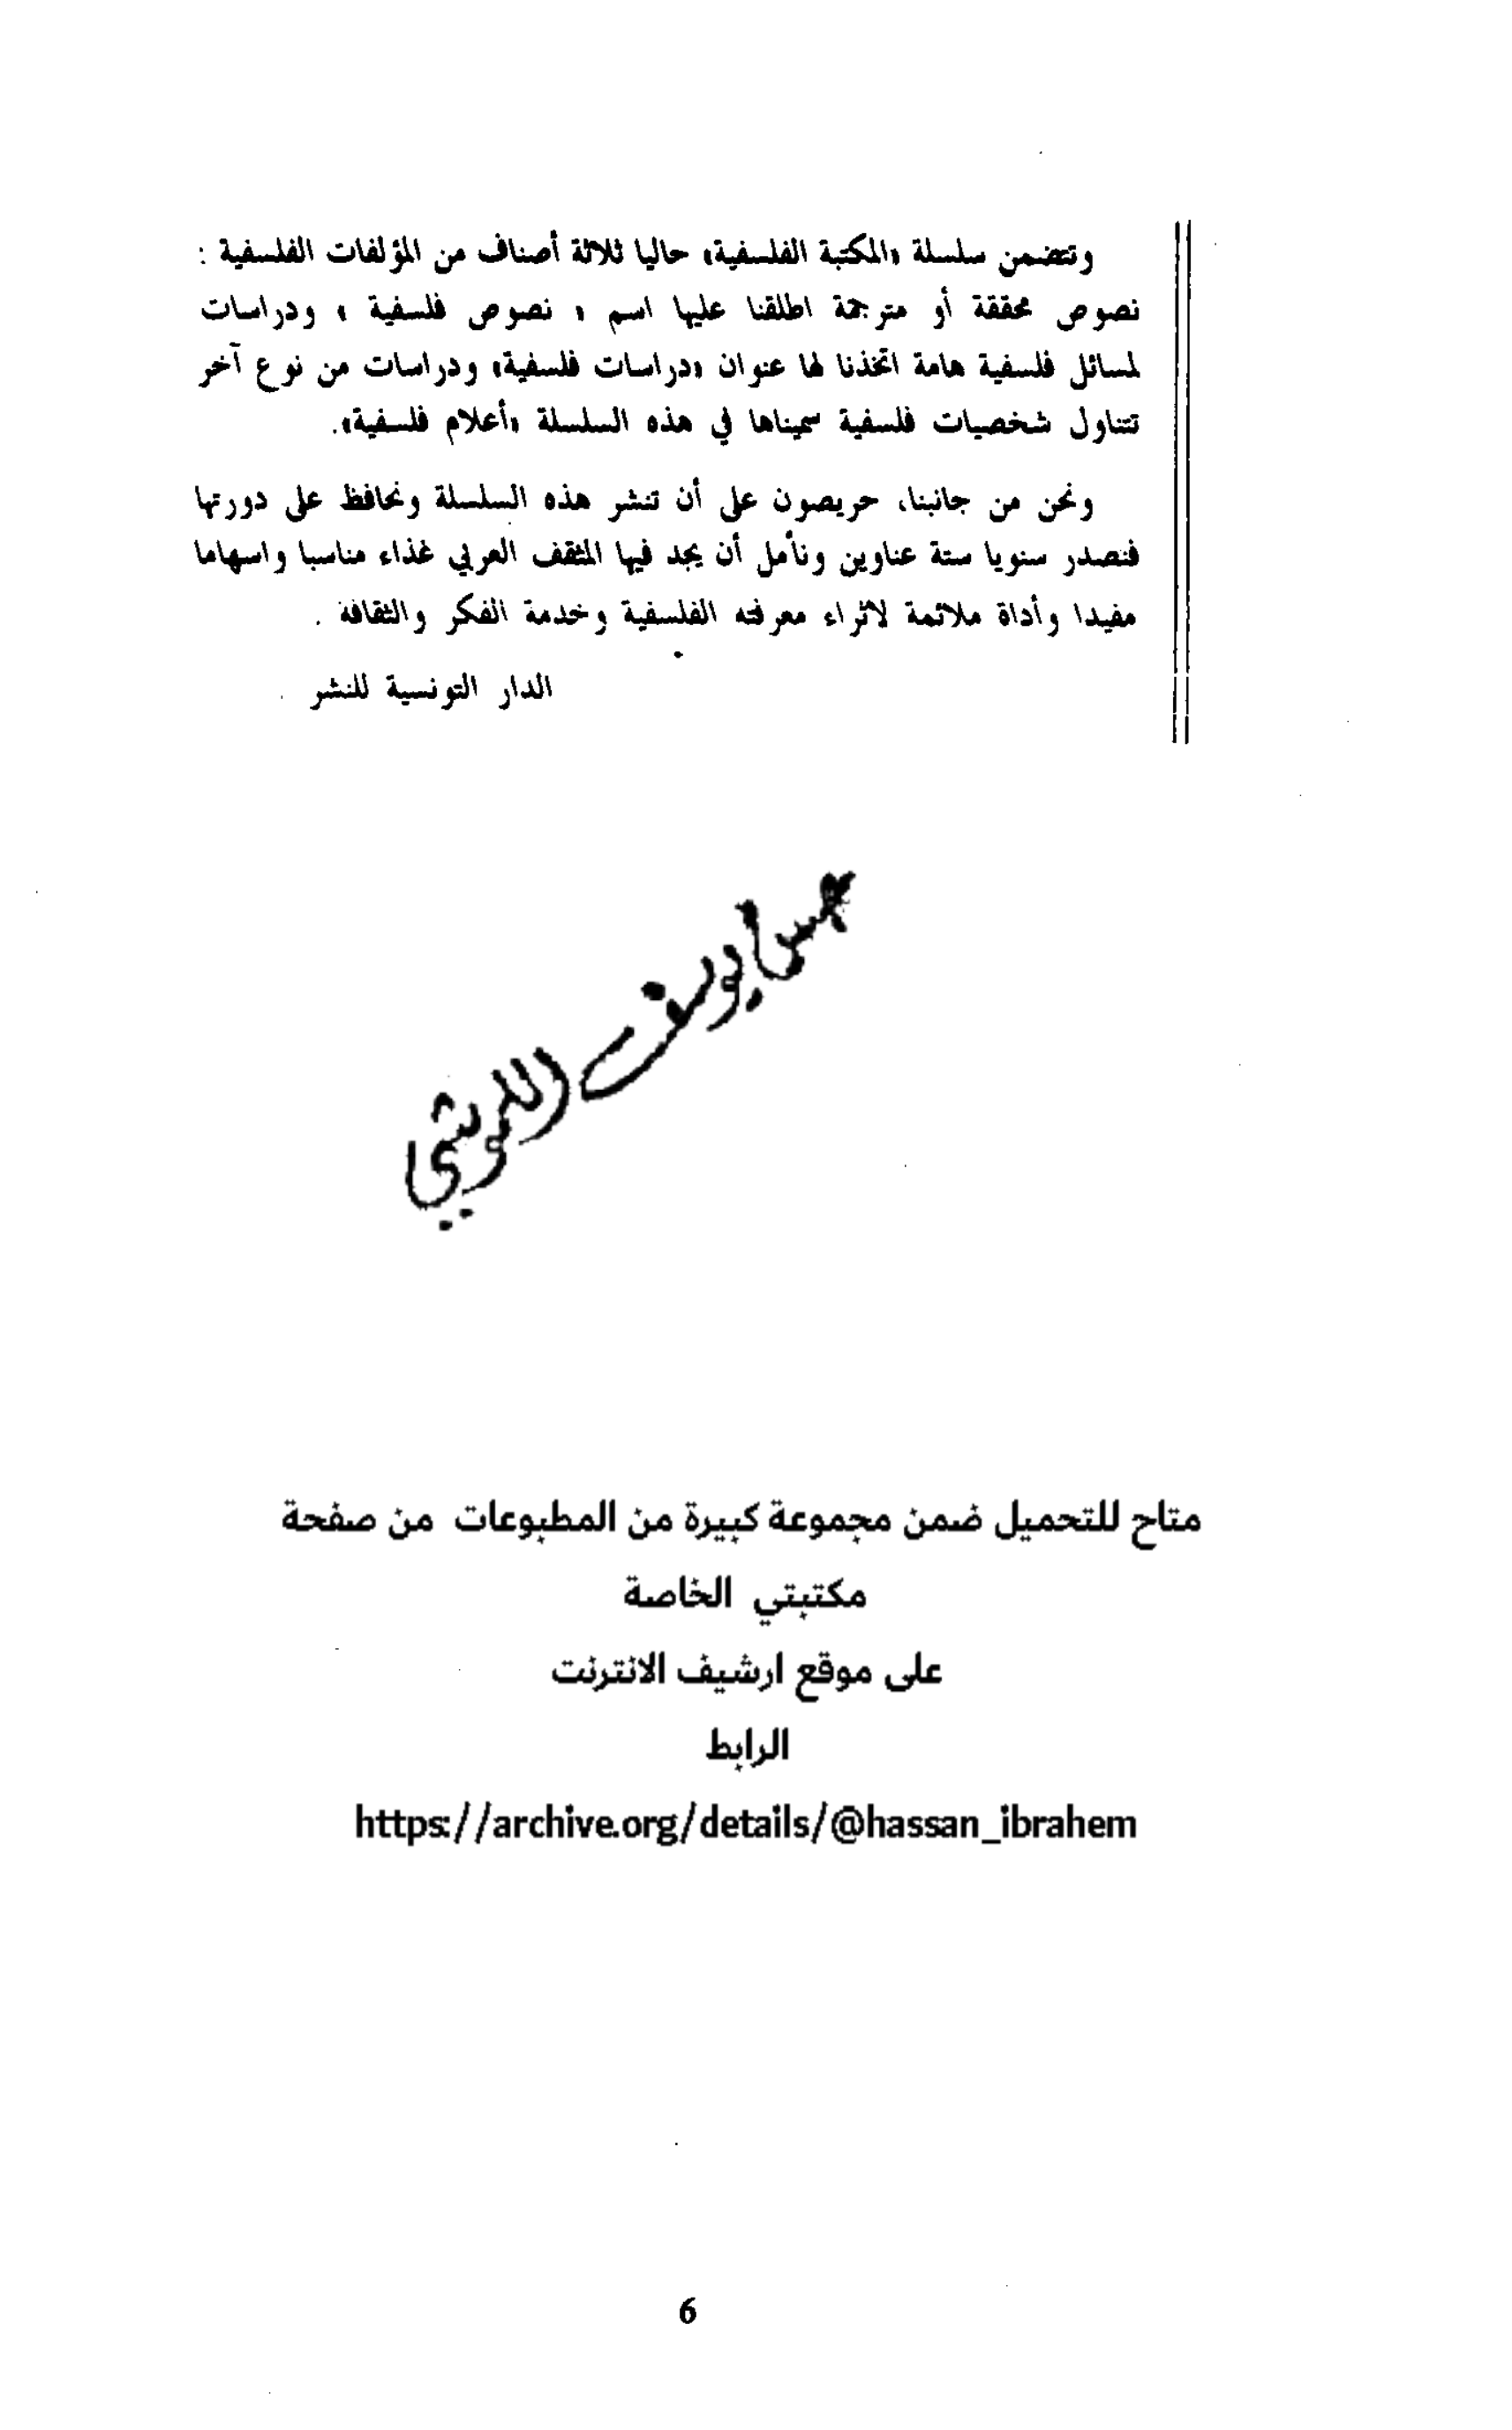 وتتضمن سلسلة «المكتبة الفلسفية» حاليا ثلاثة أصناف من المؤلفات الفلسفية :
نصوص محققة أو مترجمة اطلقنا عليها اسم « نصوص فلسفية » ودراسات
لمسائل فلسفية هامة اتخذنا لها عنوان «دراسات فلسفية» ودراسات من نوع آخر
تتناول شخصيات فلسفية سميناها في هذه السلسلة «أعلام فلسفية».
ونحن من جانبنا، حريصون على أن تنشر هذه السلسلة ونحافظ على دورتها
فنصدر سنويا ستة عناوين ونأمل أن يجد فيها المثقف العربي غذاء مناسبا واسهاما
مفيدا وأداة ملائمة لاثراء معرفته الفلسفية وخدمة الفكر والثقافة .
الدار التونسية للنشر
متاح للتحميل ضمن مجموعة كبيرة من المطبوعات من صفحة
مكتبتي الخاصة
على موقع ارشيف الانترنت
الرابط
https://archive.org/details/@hassan_ibrahem
6